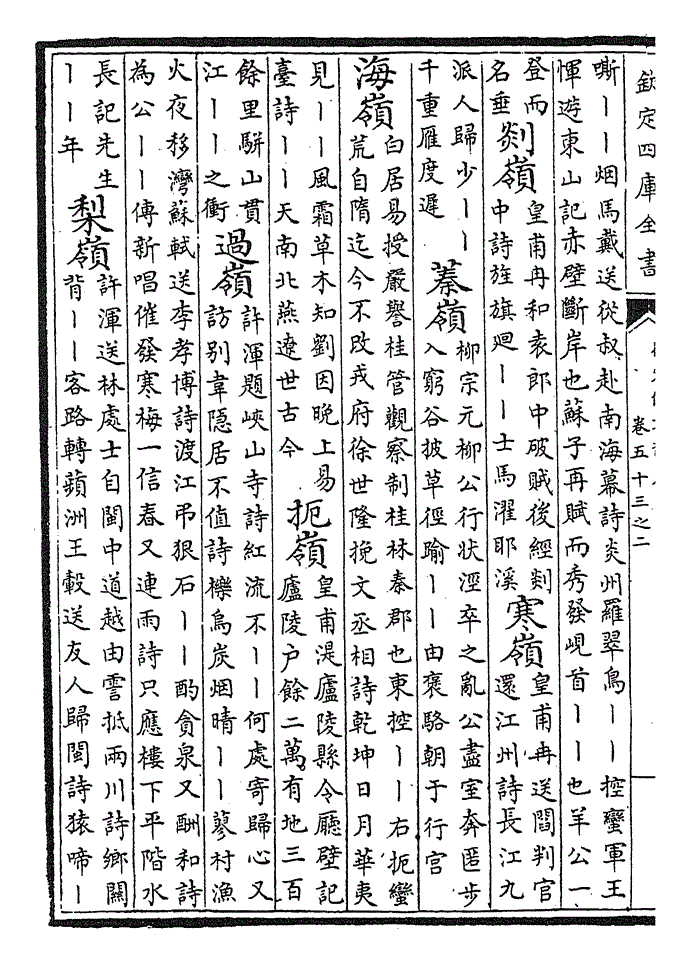 欽定四庫全書
卷五十三之二
嘶丨丨烟馬戴送從叔赴南海幕詩炎州羅翠鳥丨丨控蠻軍王
惲遊東山記赤壁斷岸也蘇子再賦而秀發峴首丨丨也羊公一
登而
名垂
剡嶺
皇甫冉和袁郎中破賊後經剡
中詩旌旗廻丨丨士馬濯耶溪
寒嶺
皇甫冉送閻判官
還江州詩長江九
派人歸少丨丨
千重雁度遲
蓁嶺
柳宗元柳公行狀涇卒之亂公盡室奔匿步
入窮谷披草徑踰丨丨由褒駱朝于行宫
海嶺
白居易授嚴譽桂管觀察制桂林秦郡也東控丨丨右扼蠻
荒自隋迄今不改戎府徐世隆挽文丞相詩乾坤日月華夷
見丨丨風霜草木知劉因晚上易
臺詩丨丨天南北燕遼世古今
扼嶺
皇甫湜廬陵縣令廳壁記
廬陵户餘二萬有地三百
餘里駢山貫
江丨丨之衝
過嶺
許渾題峽山寺詩紅流不丨丨何處寄歸心又
訪别韋隱居不值詩櫟烏炭烟晴丨丨蓼村漁
火夜移灣蘇軾送李孝博詩渡江弔狠石丨丨酌貪泉又酬和詩
為公丨丨傳新唱催發寒梅一信春又連雨詩只應樓下平階水
長記先生
丨丨年
梨嶺
許渾送林處士自閩中道越由霅抵兩川詩鄉關
背丨丨客路轉蘋洲王轂送友人歸閩詩猿啼丨